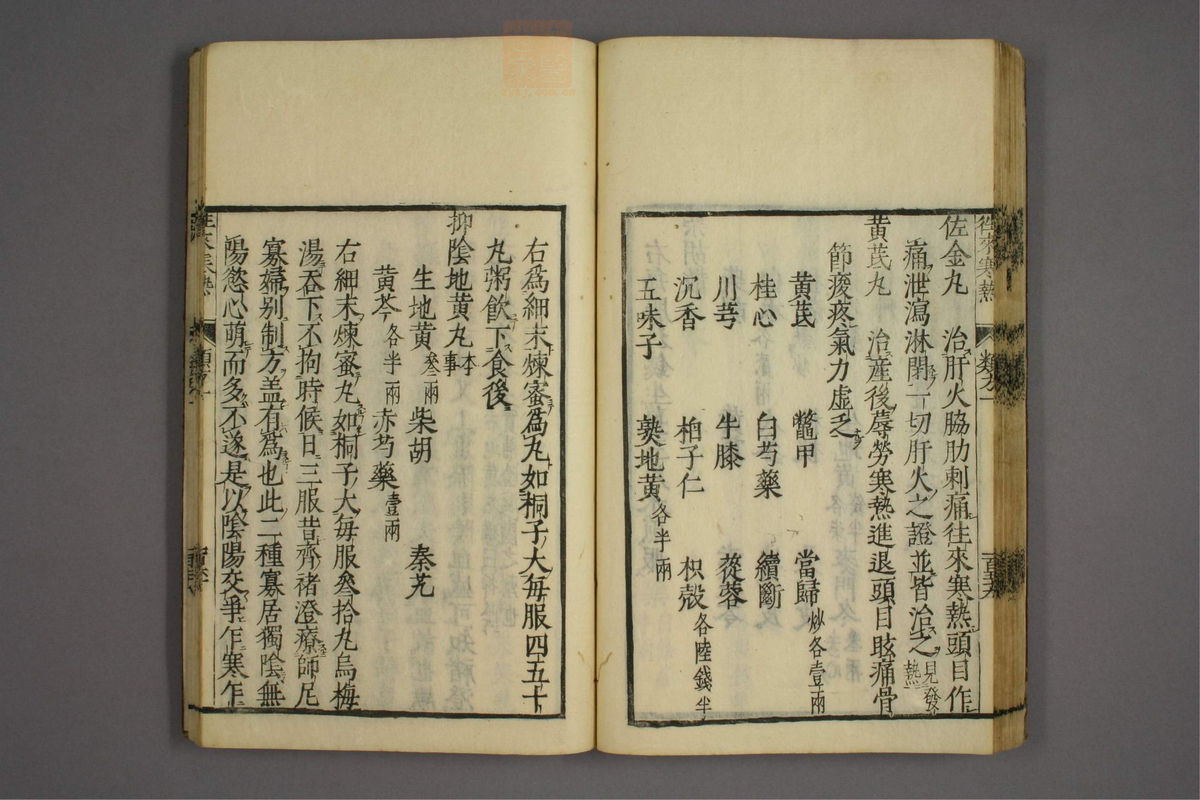 往來寒熱
佐金丸　治肝火脇肋刺痛往來寒熱頭目作
痛泄瀉淋閉一切肝火之證並皆治之見發熱
黄芪丸　治産後蓐勞寒熱進退頭目眩痛骨
節痠疼氣力虚乏
黄芪　鼈甲　當歸炒各壹兩
桂心　白芍藥　續斷
川芎　牛膝　蓯蓉
沉香　柏子仁　枳殻各陸錢半
五味子　熟地黄各半兩
右爲細末煉蜜爲丸如桐子大毎服四五十
丸粥飲下食後
抑陰地黄丸本事
生地黄叁兩　柴胡　秦艽
黄芩各半兩　赤芍藥壹兩
右細末煉蜜丸如桐子大毎服叁拾丸烏梅
湯吞下不拘時候日三服昔齊褚澄療師尼
寡婦别制方盖有爲也此二種寡居獨陰無
陽慾心萌而多不遂是以陰陽交爭乍寒乍